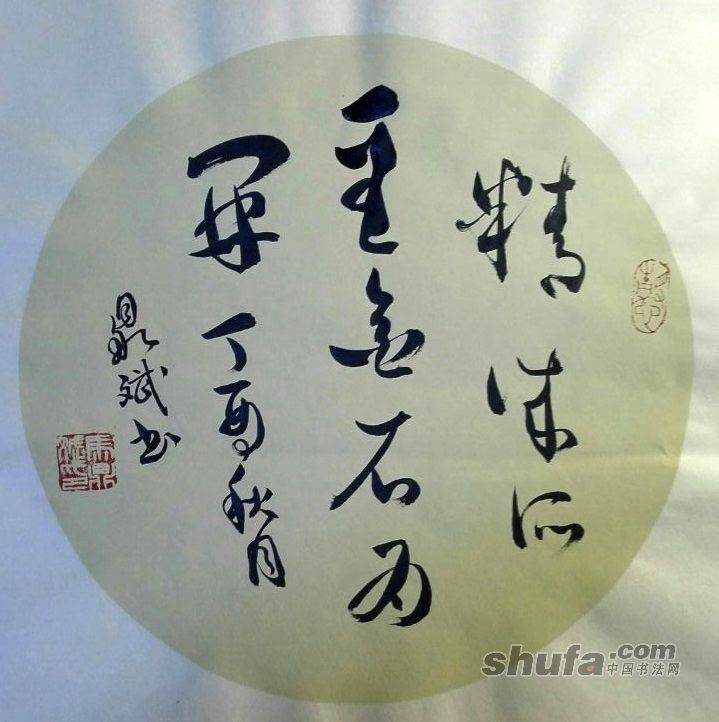 精诚所
至金石为
开 丁酉秋月
斌书
shufa.com
中国书法网